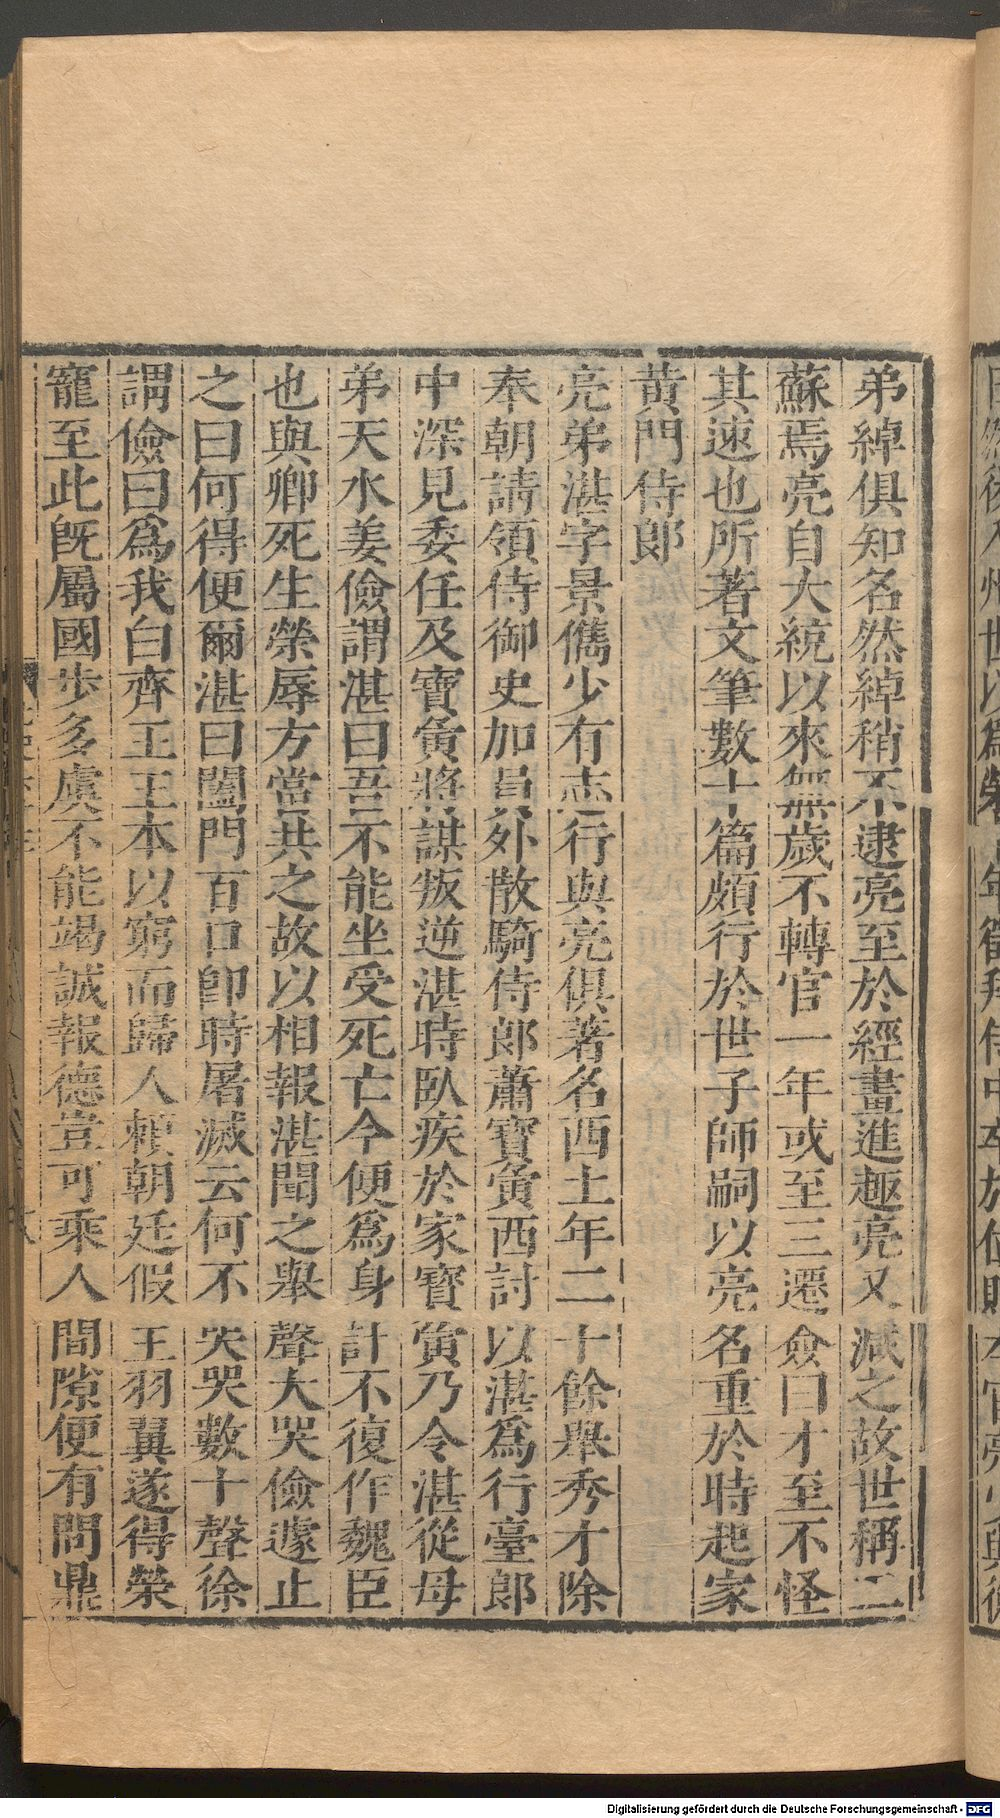 弟綽俱知名然綽稍不逮亮至於經畫進趣亮又減之故世稱二
蘇焉亮自大統以來無歲不轉官一年或至三遷僉曰才至不怪
其速也所著文筆數十篇頗行於世子師嗣以亮名重於時起家
黄門侍郎
亮弟湛字景儁少有志行與亮俱著名西土年二十餘舉秀才除
奉朝請領侍御史加員外散騎侍郎蕭寶夤西討以湛爲行臺郎
中深見委任及寶夤將謀叛逆湛時臥疾於家寶夤乃令湛從母
弟天水姜儉謂湛曰吾不能坐受死亡今便爲身計不復作魏臣
也與卿死生榮辱方當共之故以相報湛聞之舉聲大哭儉遽止
之曰何得便爾湛曰闔門百口卽時屠滅云何不哭哭數十聲徐
謂儉曰爲我白齊王王本以窮而歸人賴朝廷假王羽翼遂得榮
寵至此旣屬國步多虞不能竭誠報德豈可乘人間隙便有問鼎
Digitalisierung gefördert durch die Deutsche Forschungsgemeinschaft - DFG